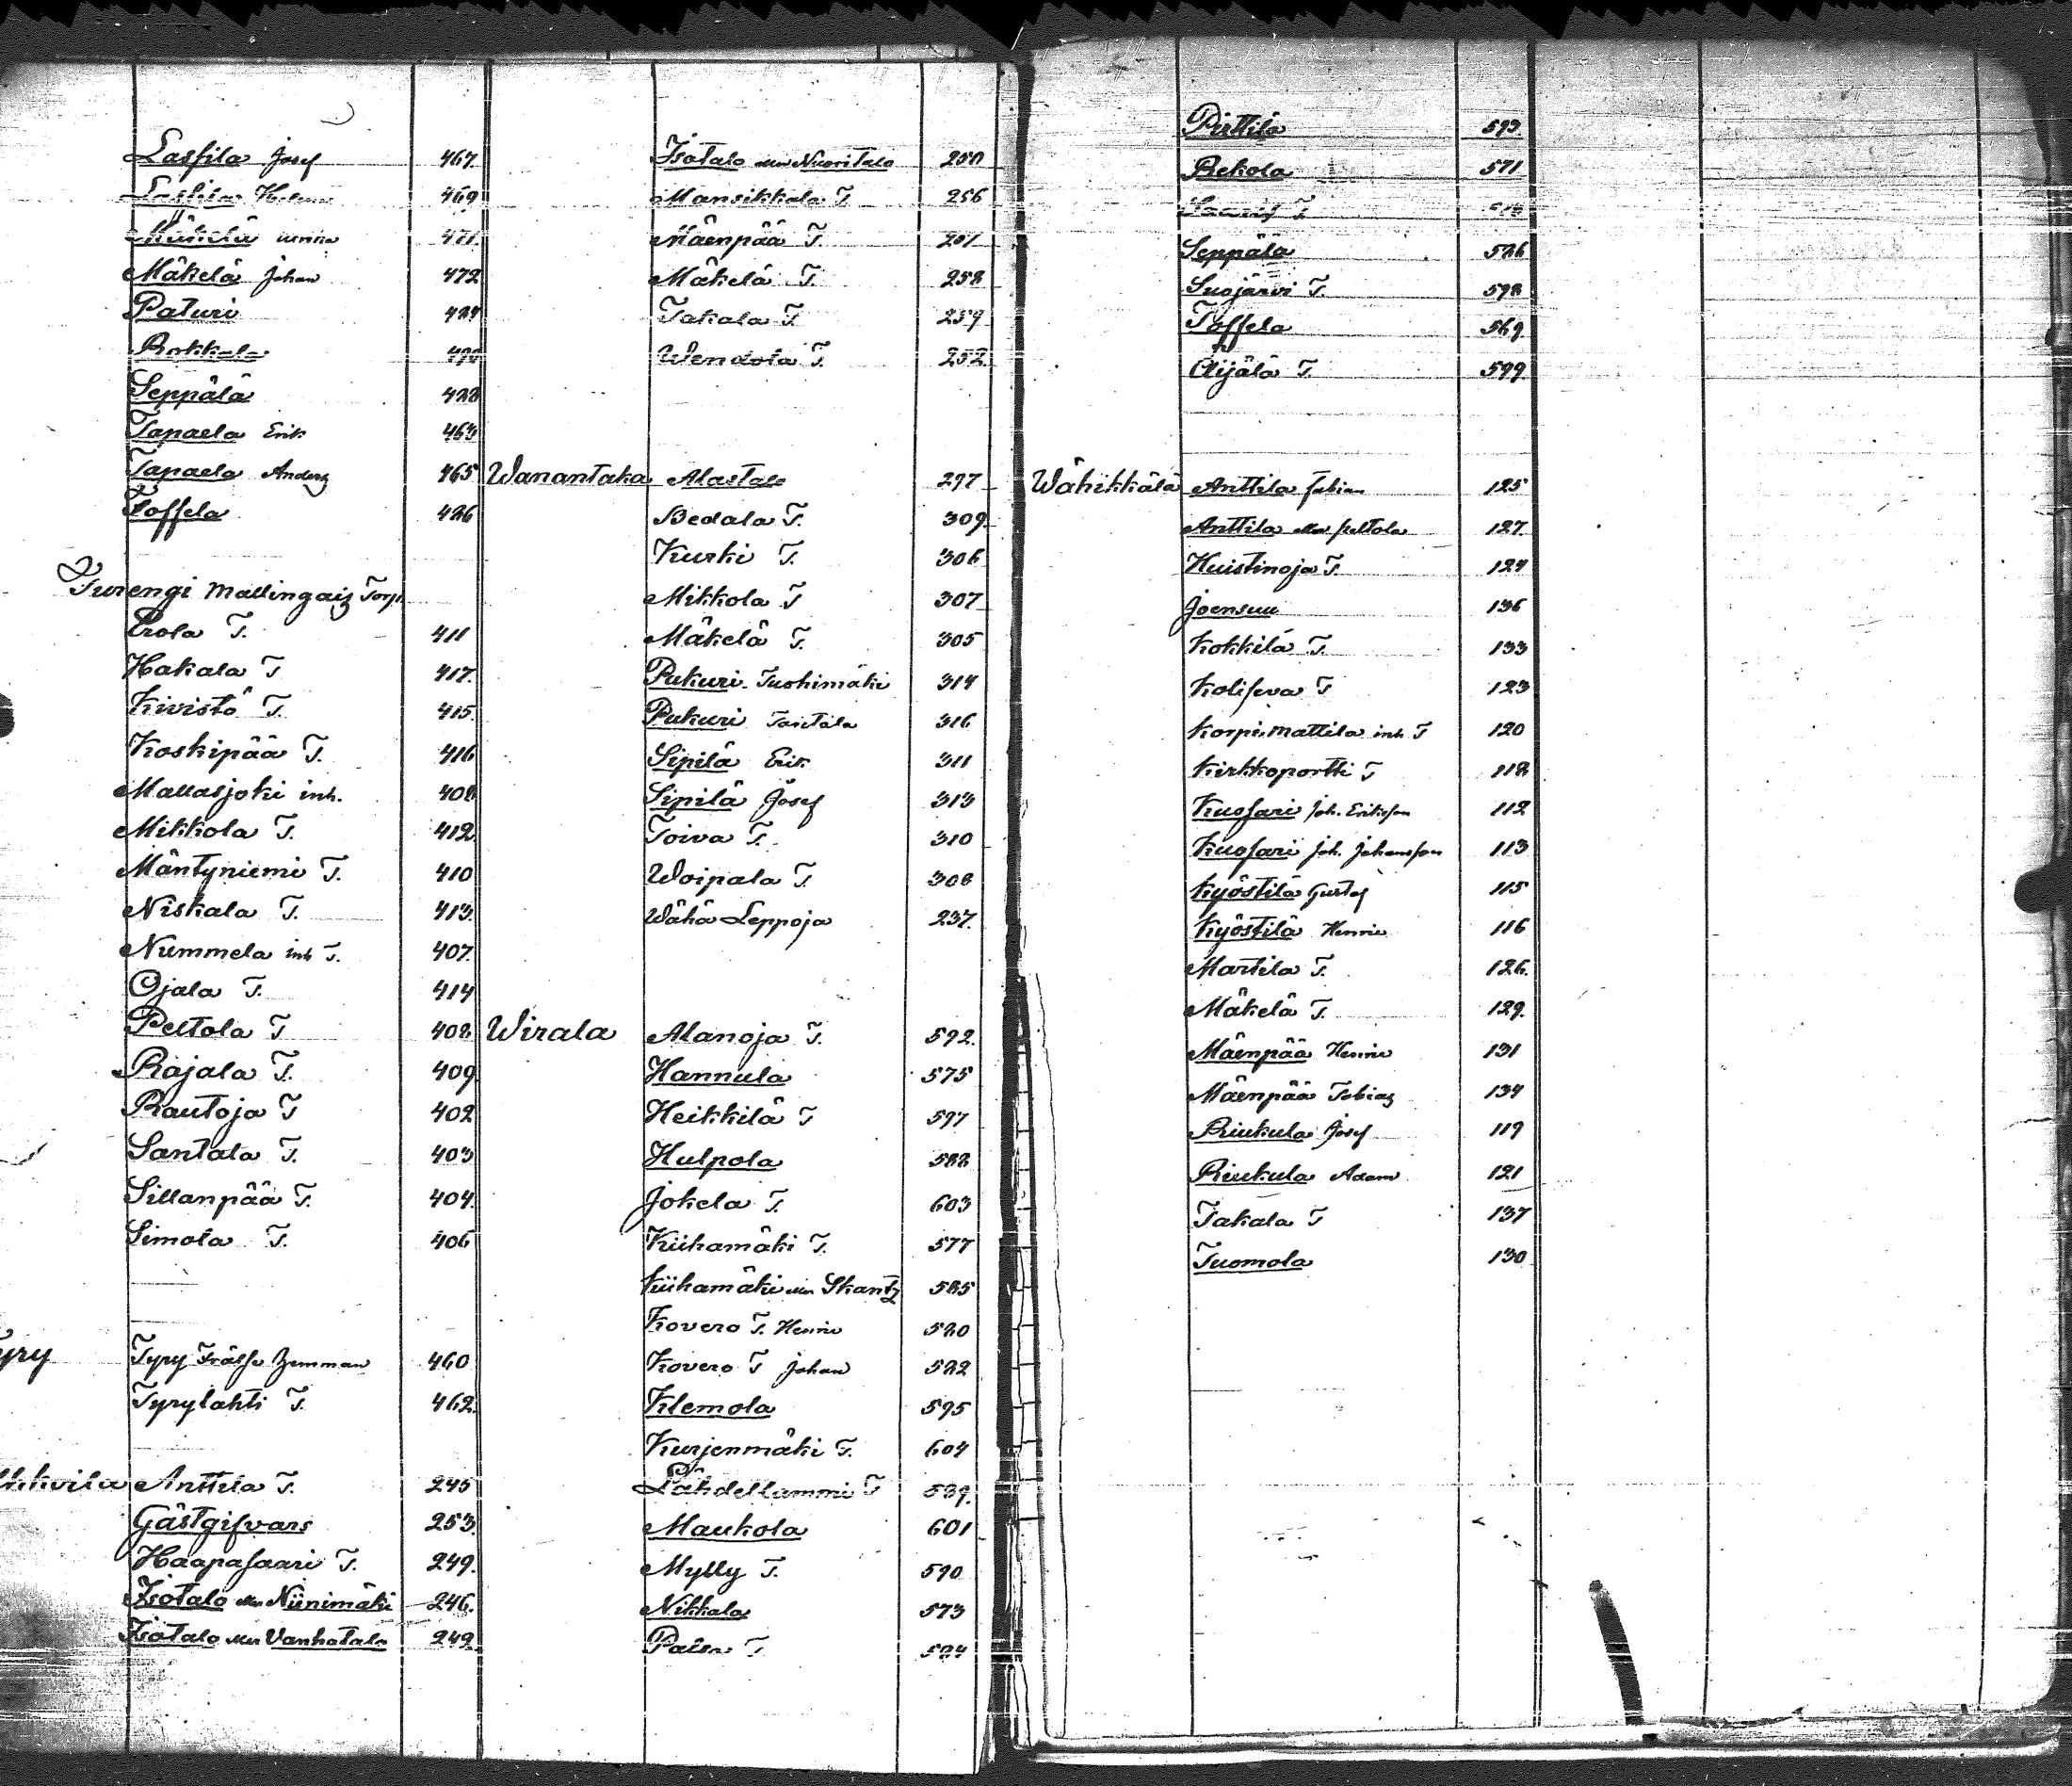 Lassila Josef 467.
Lassila Helena 469
Mäkelä 471.
Mäkelä Johan 472
Paturi
Rokkala
Seppälä 428
Tapaela Erik 463
Tapaela Anders 465
Toffela 426
Turengi Mallingais Torp.
Erola T. 411
Hakala T 417.
Kivistö T. 415.
Koskipää T. 416
Mallasjoki inh. 408
Mikkola T. 412
Mäntyniemi T. 410
Niskala T. 413.
Nummela inh T. 407.
Ojala T. 414
Peltola T 408.
Rajala T. 409
Rautoja T 402
Santala T. 403
Sillanpää T. 404.
Simola T. 406
Tyry Frälse Zemman 460
Tyrylahti T. 462.
Anttila T. 245
Gästgifvars 253.
Haapasaari T. 249.
Isotalo eller Niinimäki 246.
Isotalo eller Vanhatalo 242
Isotalo eller Nuoritalo 250
Mansikkala T 256
Mäenpää T.
Mäkelä T. 258
Takala T 259
Wendola T. 252.
Wanantaka Alastalo 297
Bedala T. 309.
Kurki T. 306
Mikkola T 307
Mäkelä T. 305
Pukuri Tushimäki 314
Pukuri Tantala 316
Sipilä Erik 311
Sipilä Josef 313
Toiva T. 310
Woipala T. 308
Wähä Leppoja 237.
Wirala Alanoja T. 592.
Hannula 575
Heikkilä T 597
Hulpola 588
Jokela T. 603
Kiihamäki T. 577
Kiihamäki eller Skantz 585
Kovero T. Henric 580
Kovero T Johan 582
Klemola 595
Kurjenmäki T. 604
Lähdellammi T 589.
Maukola 601
Mylly T. 590
Nikkala 573
Pirttilä 593.
Rekola 571
Seppälä 586
Suojärvi T. 598
Toffela 569.
Äijälä T. 599
Wähikkälä Anttila Fabian 125
Anttila eller Peltola 127.
Huistinoja T. 124
Joensuu 136
Kokkila T. 133
Koliseva T 123
Korpi Mattila inh T 120
Kirkkoportti T 118
Kuosari Joh. Eriksson 112
Kuosari Joh. Johansson 113
Kyöstilä Gustaf 115
Kyöstilä Henric 116
Martila T. 126.
Mäkelä T. 129.
Mäenpää Henric 131
Mäenpää Tobias 134
Riukula Josef 119
Riukula Adam 121
Takala T 137
Tuomola 130